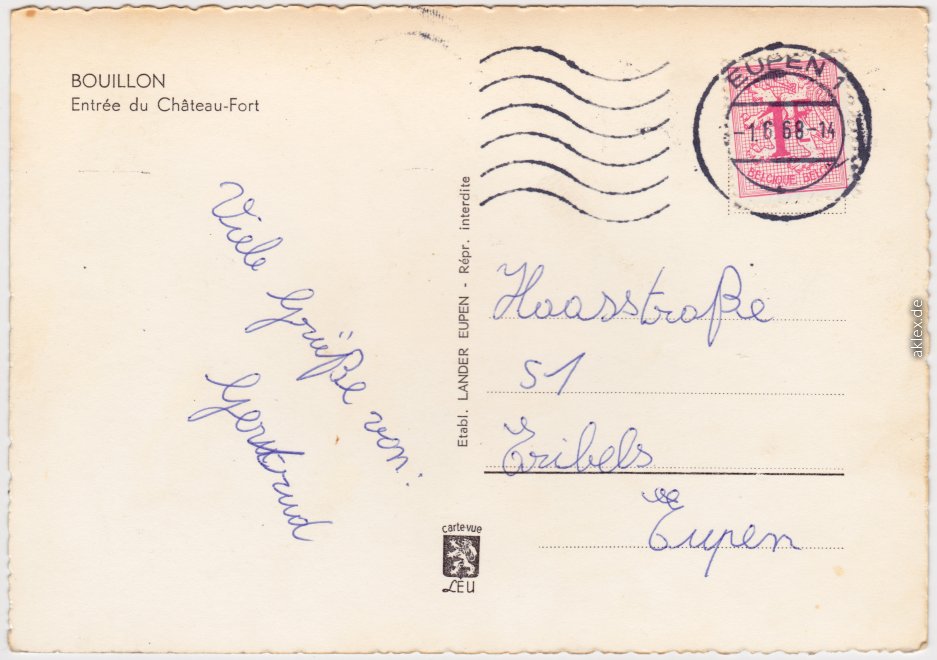 BOUILLON
Entrée du Château-Fort
Viele Grüße von:
Gertrud
Etabl. LANDER EUPEN - Répr. interdite
carte-vue
LEU
EUPEN 1
-1.6 68-14
1F
BELGIQUE BELGIË
Haasstraße
51
Eupen
aklex.de